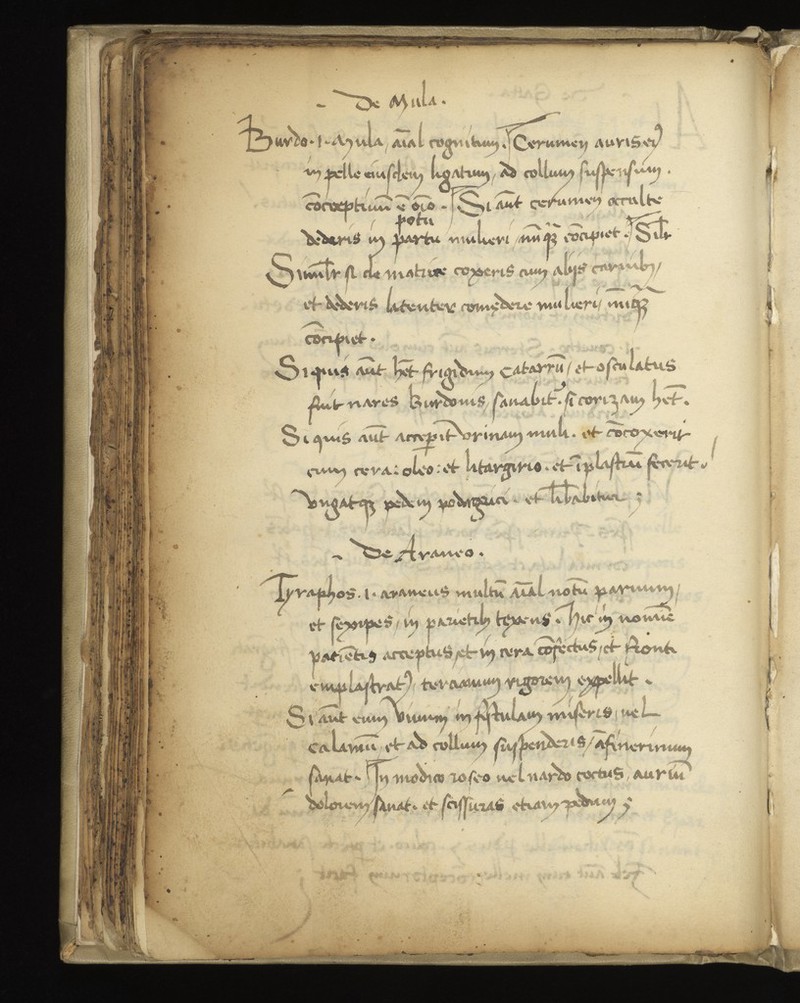 ~ De Mula .
Burdo .i. Mula, aīal cognitum. Cerumen auris eiꝰ
in pelle eiusdem ligatum, ad collum suspensum .
cōcoeptiuū ē oīo . Si aūt cerumen occulte
potu
dederis in partu mulieri nūqꝫ cōcipiet . Silr
Simil̄r si de matrice coxeris cum alijs carnibꝫ,
et dederis latenter comedere mulieri, nūqꝫ
cōcipiet .
Si quis aūt hēt frigidum Catarrū, et osculatus
fuit nares Burdonis sanabitᷣ. si corizam hēt .
Si quis aūt acceperit vrinam muli . et cōcoxerit
cum cera: oleo: et litargirio . et īplastrū fecerit .
vngatqꝫ pedem podagrici . et lib̄abitur ;
~ De Araneo .
Tyraphos .i. araneus multū aīal notū paruum,
et sexipes, in parietibꝫ texens . Hic in nomīe
patiētis acceptus, et in cera cōfectus, et fronti
emplastratꝰ, tercianum rigorem expellit .
Si aūt eum viuum in fistulam miseris, uel
calamū, et ad collum suspenderis,
sanat . In modico roseo uel nardo coctus, auriū
dolorem sanat . et scissuras etiam pedum ;